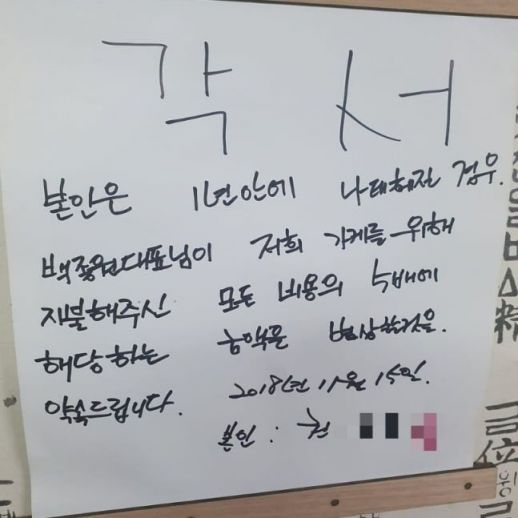 각 서
본인은 1년안에 나태해진 경우.
백종원대표님이 저희 가게를 위해
지불해주신 모든 비용의 5배에
해당하는 금액을 보상할것을
약속드립니다. 2018년 11월 15일.
본인 : 권
精